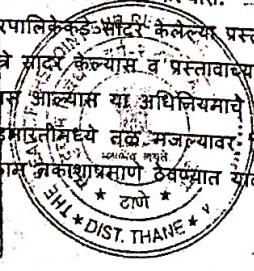 रपालिकेकडे सादर केलेल्या प्रस्त
त्रे सादर केल्यास व प्रस्तावाच्य
स आल्यास या अधिनियमाचे
इमारतीमध्ये तळ मजल्यावर
काम नकाशाप्रमाणे ठेवण्यात या
ठाणे
THE
DIST. THANE